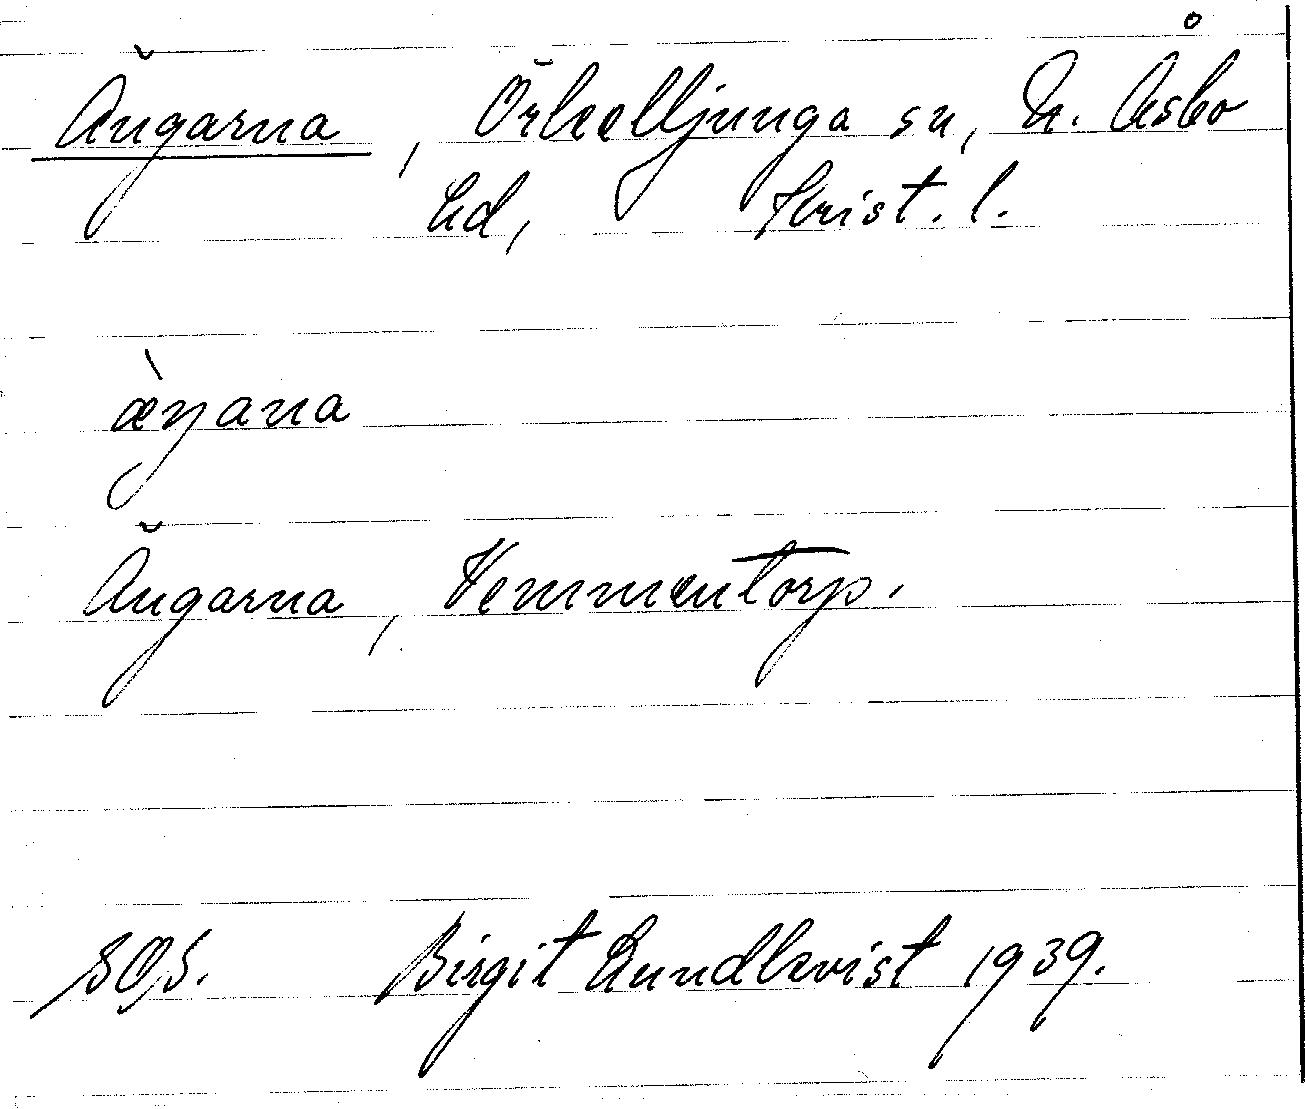 Ängarna, Örkelljunga sn, N. Åsbo
hd, Krist. l.
æ̀ŋana
Ängarna, Vemmentorp.
SOS. Birgit Lundkvist 1939.